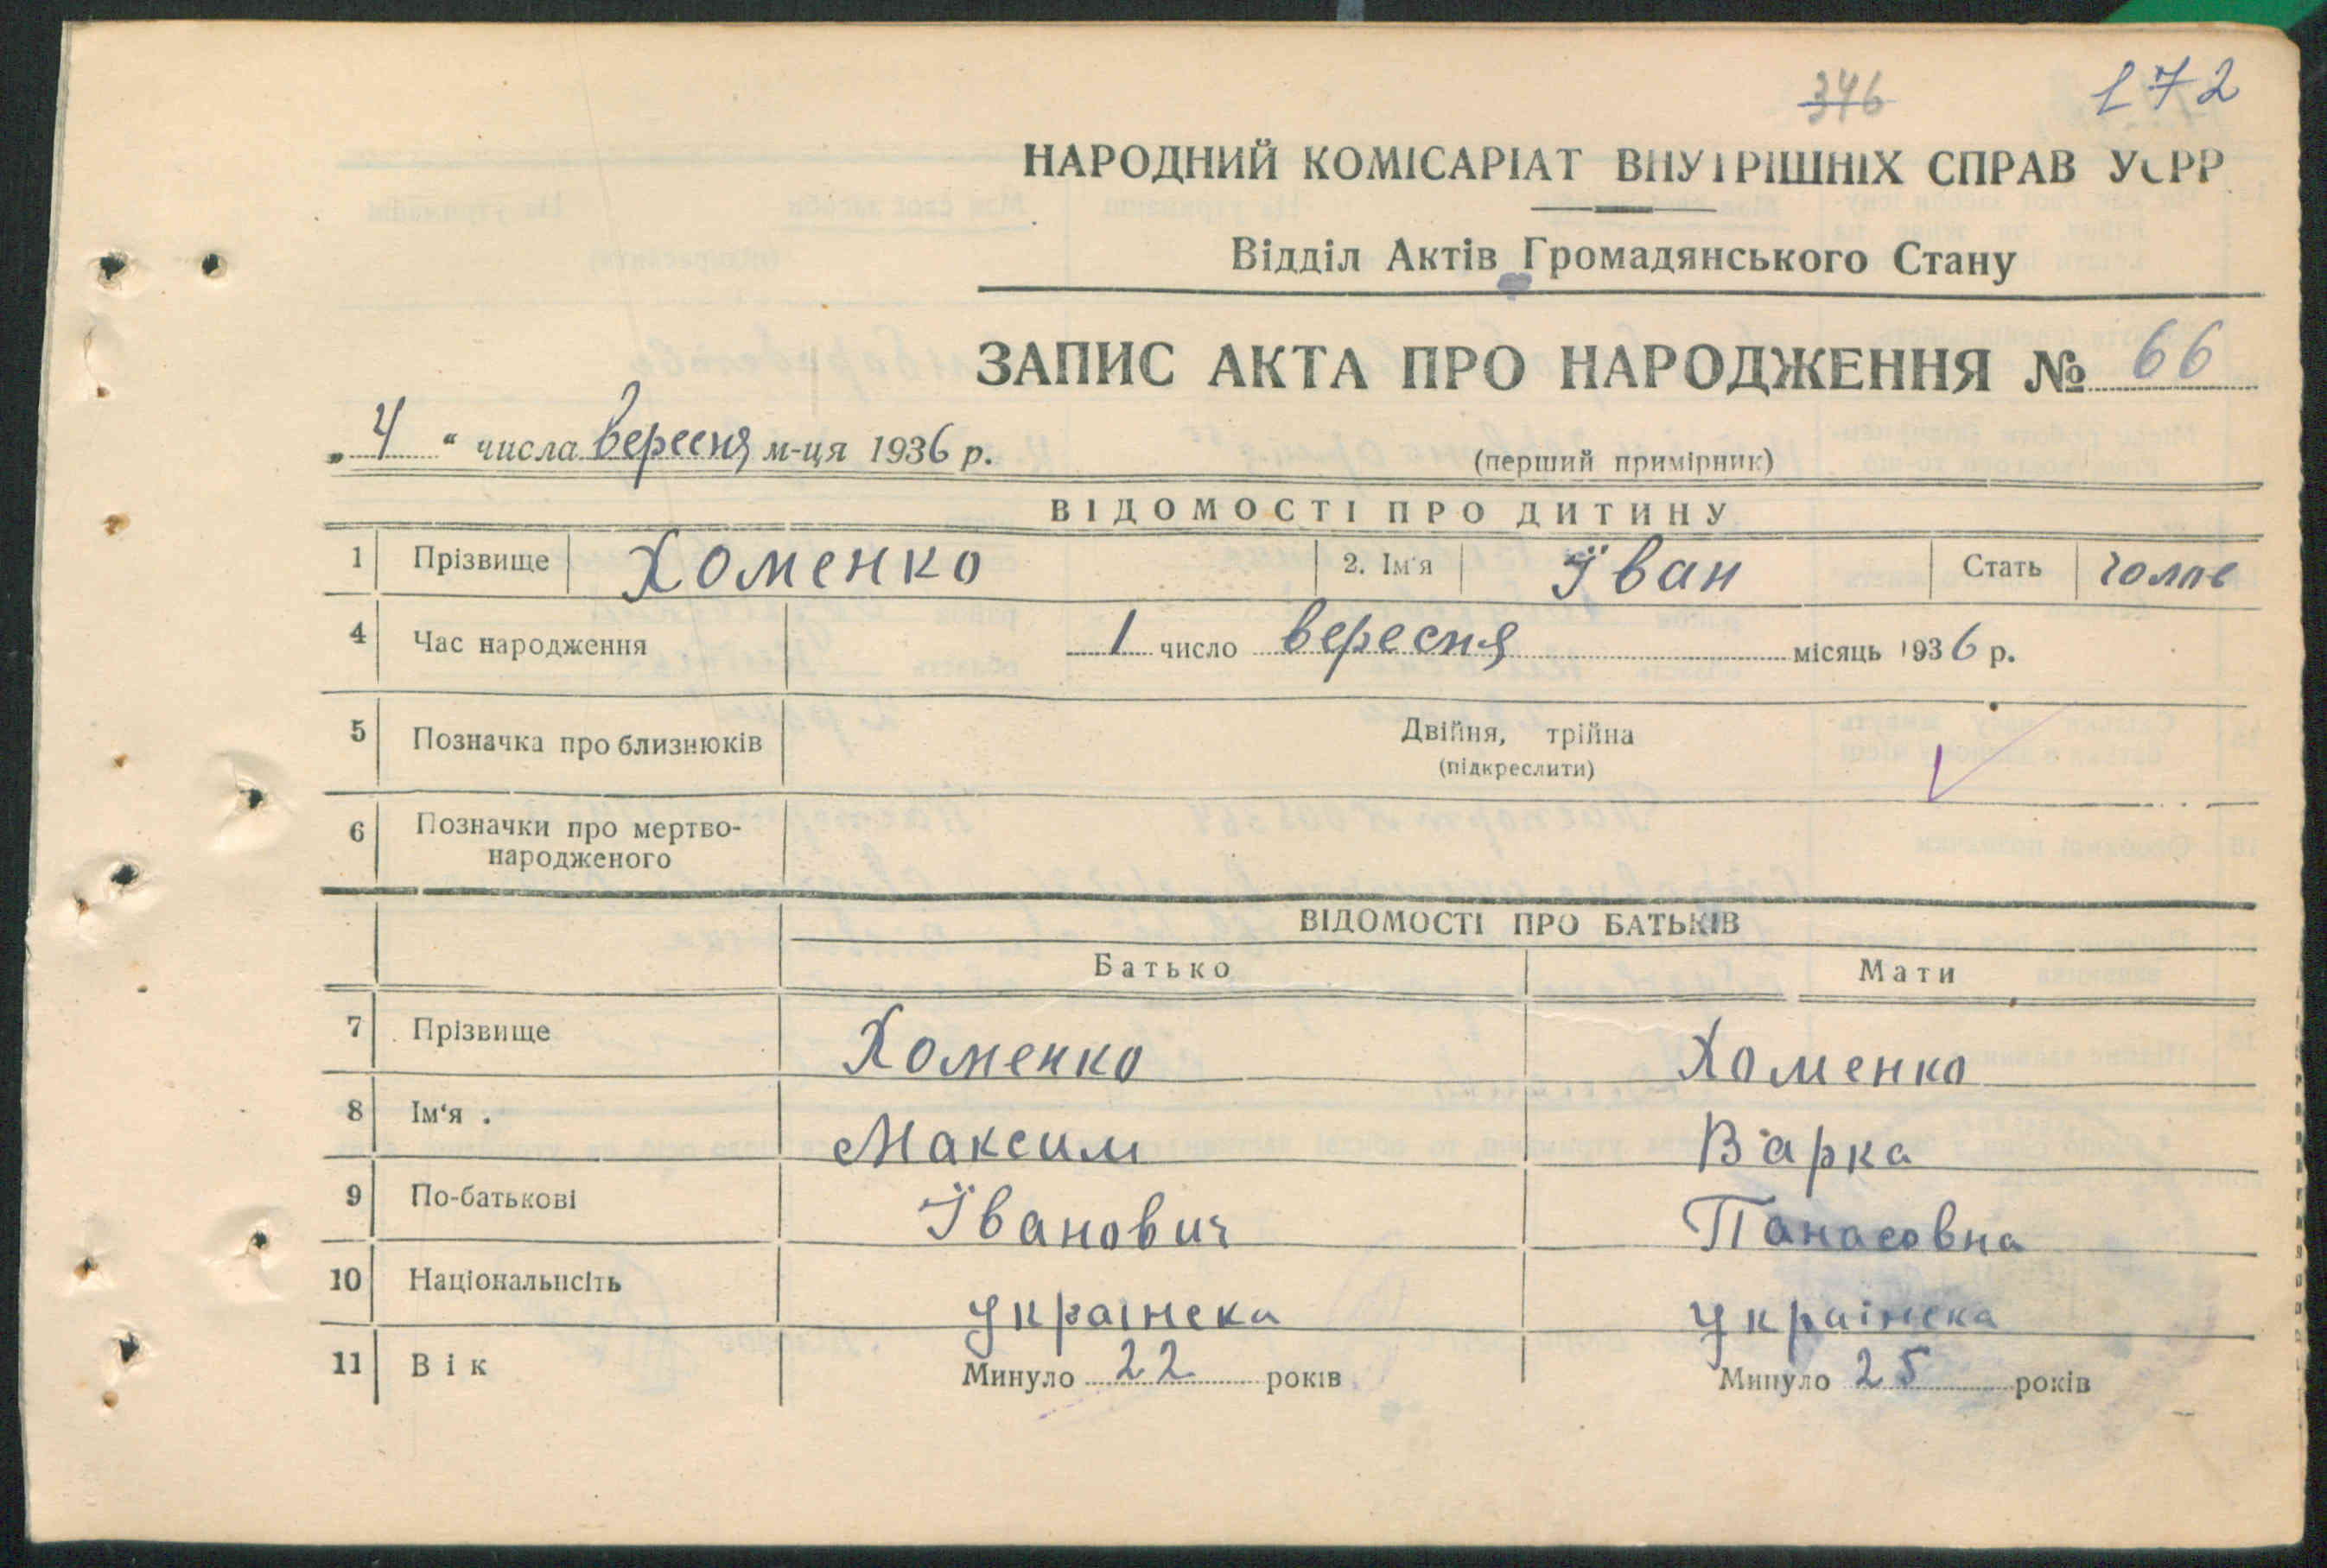 346 172
НАРОДНИЙ КОМІСАРІАТ ВНУТРІШНІХ СПРАВ УСРР
Відділ Актів Громадянського Стану
ЗАПИС АКТА ПРО НАРОДЖЕННЯ № 66
„4“ числа вересня м-ця 1936 р.
(перший примірник)
ВІДОМОСТІ ПРО ДИТИНУ
1 Прізвище Хоменко 2. Ім'я Їван Стать
4 Час народження 1 число вересня місяць 1936 р.
5 Позначка про близнюків Двійня, трійна
(підкреслити)
6 Позначки про мертво-
народженого
ВІДОМОСТІ ПРО БАТЬКІВ
Батько Мати
7 Прізвище Хоменко Хоменко
8 Ім'я . Максим Варка
9 По-батькові Їванович Панасовна
10 Національнсіть украінска украінска
11 Вік Минуло 22 років Минуло 25 років